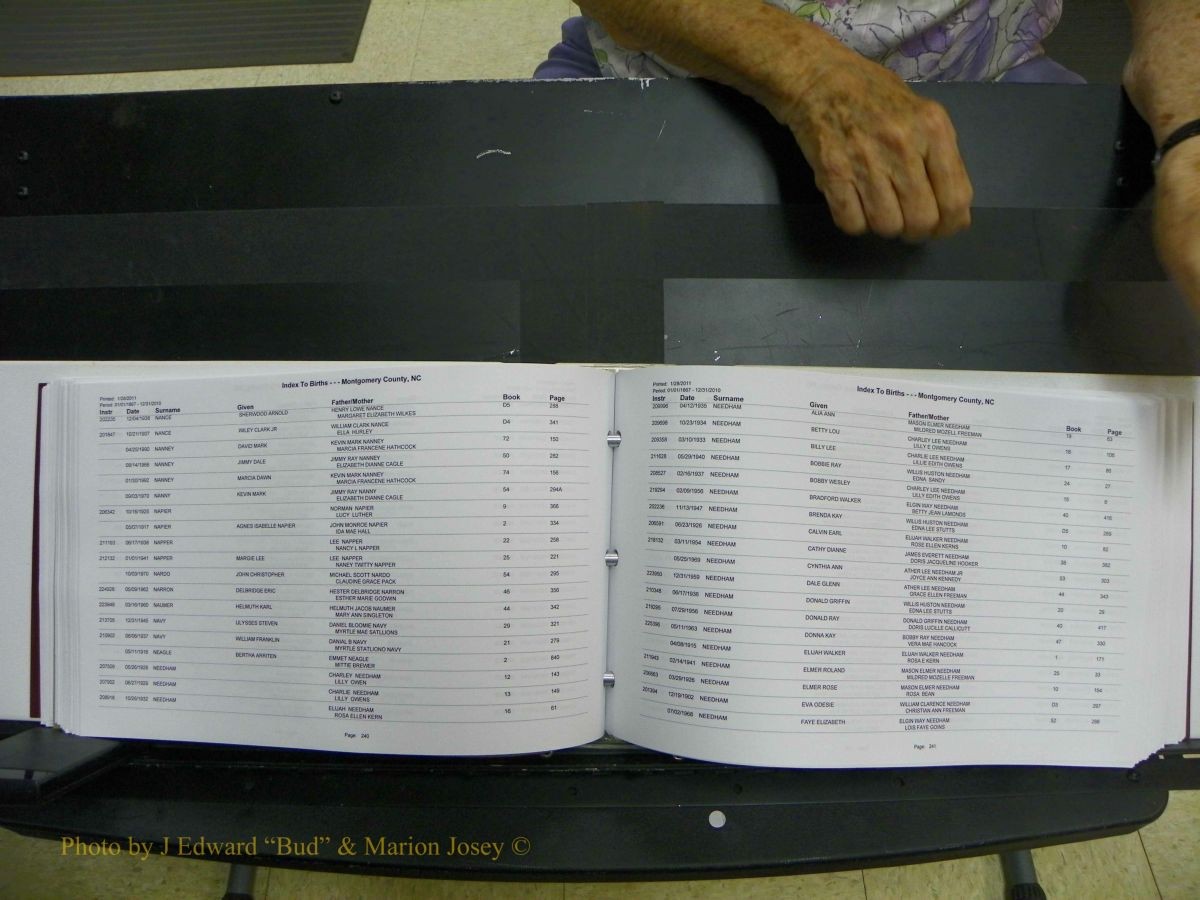 Index To Births - - - Montgomery County, NC
Printed: 1/28/2011
Period: 01/01/1867 - 12/31/2010
Instr Date Surname Given Father/Mother Book Page
12/04/1936 NANCE SHERWOOD ARNOLD HENRY LOWE NANCE D5 288
MARGARET ELIZABETH WILKES
10/21/1937 NANCE WILEY CLARK JR WILLIAM CLARK NANCE D4 341
ELLA HURLEY
NANNEY DAVID MARK KEVIN MARK NANNEY 72 152
MARCIA FRANCENE HATHCOCK
NANNEY JIMMY DALE JIMMY RAY NANNEY 50 282
ELIZABETH DIANNE CAGLE
NANNEY MARCIA DAWN KEVIN MARK NANNEY 74 156
MARCIA FRANCENE HATHCOCK
09/03/1970 NANNY KEVIN MARK JIMMY RAY NANNY 54 294A
ELIZABETH DIANNE CAGLE
206342 NAPIER NORMAN NAPIER 9 366
LUCY LUTHER
NAPIER AGNES ISABELLE NAPIER JOHN MONROE NAPIER 2 334
IDA MAE HALL
NAPPER LEE NAPPER 22 258
NANCY L NAPPER
212132 01/01/1941 NAPPER MARGIE LEE LEE NAPPER 25 221
NANEY TWITTY NAPPER
10/03/1970 NARDO JOHN CHRISTOPHER MICHAEL SCOTT NARDO 54 295
CLAUDINE GRACE PACK
224926 05/09/1962 NARRON DELBRIDGE ERIC HESTER DELBRIDGE NARRON 46 356
ESTHER MARIE GODWIN
223948 03/16/1960 NAUMER HELMUTH KARL HELMUTH JACOB NAUMER 44 342
MARY ANN SINGLETON
213705 12/31/1945 NAVY ULYSSES STEVEN DANIEL BLOOMIE NAVY 29 321
MYRTLE MAE SATLLIONS
210902 NAVY WILLIAM FRANKLIN DANIAL B NAVY 21 279
MYRTLE STATLIONO NAVY
05/11/1918 NEAGLE BERTHA ARRITEN EMMET NEAGLE 2 840
MITTIE BREWER
NEEDHAM CHARLEY NEEDHAM 12 143
LILLY OWEN
NEEDHAM CHARLIE NEEDHAM 13 149
LILLY OWENS
10/26/1932 NEEDHAM ELIJAH NEEDHAM 16 61
ROSA ELLEN KERN
Page 240
Index To Births - - - Montgomery County, NC
Printed: 1/28/2011
Period: 01/01/1867 - 12/31/2010
Instr Date Surname Given Father/Mother Book Page
209996 04/12/1935 NEEDHAM ALIA ANN MASON ELMER NEEDHAM 19 53
MILDRED MOZELL FREEMAN
10/23/1934 NEEDHAM BETTY LOU CHARLEY LEE NEEDHAM 18
LILLY E OWENS
03/10/1933 NEEDHAM BILLY LEE CHARLIE LEE NEEDHAM 17
LILLIE EDITH OWENS
211628 05/29/1940 NEEDHAM BOBBIE RAY WILLIS HUSTON NEEDHAM 24 27
EDNA SANDY
02/16/1937 NEEDHAM BOBBY WESLEY CHARLEY LEE NEEDHAM
LILLY EDITH OWENS
219294 02/09/1956 NEEDHAM BRADFORD WALKER ELGIN WAY NEEDHAM 40 416
BETTY JEAN LAMONDS
202236 11/13/1947 NEEDHAM BRENDA KAY WILLIS HUSTON NEEDHAM D5 289
EDNA LEE STUTTS
206591 06/23/1926 NEEDHAM CALVIN EARL ELIJAH WALKER NEEDHAM 10 82
ROSE ELLEN KERNS
218132 03/11/1954 NEEDHAM CATHY DIANNE JAMES EVERETT NEEDHAM 38 382
DORIS JACQUELINE HOOKER
05/25/1969 NEEDHAM CYNTHIA ANN ATHER LEE NEEDHAM JR 53 303
JOYCE ANN KENNEDY
12/31/1959 NEEDHAM DALE GLENN ATHER LEE NEEDHAM 44 343
GRACE ELLEN FREEMAN
210348 06/17/1936 NEEDHAM DONALD GRIFFIN WILLIS HUSTON NEEDHAM 20 29
EDNA LEE STUTTS
219295 07/29/1956 NEEDHAM DONALD RAY DONALD GRIFFIN NEEDHAM 40 417
DORIS LUCILLE CALLICUTT
225396 05/11/1963 NEEDHAM DONNA KAY BOBBY RAY NEEDHAM 47 330
VERA MAE HANCOCK
04/08/1915 NEEDHAM ELIJAH WALKER ELIJAH WALKER NEEDHAM 1 171
ROSA E KERN
211943 02/14/1941 NEEDHAM ELMER ROLAND MASON ELMER NEEDHAM 25 33
MILDRED MOZELLE FREEMAN
206663 03/29/1926 NEEDHAM ELMER ROSE MASON ELMER NEEDHAM 10 154
ROSA BEAN
201394 12/19/1902 NEEDHAM EVA ODESIE WILLIAM CLARENCE NEEDHAM D3 297
CHRISTIAN ANN FREEMAN
07/02/1968 NEEDHAM FAYE ELIZABETH ELGIN WAY NEEDHAM 52 298
LOIS FAYE GOINS
Page 241
Photo by J Edward “Bud” & Marion Josey ©